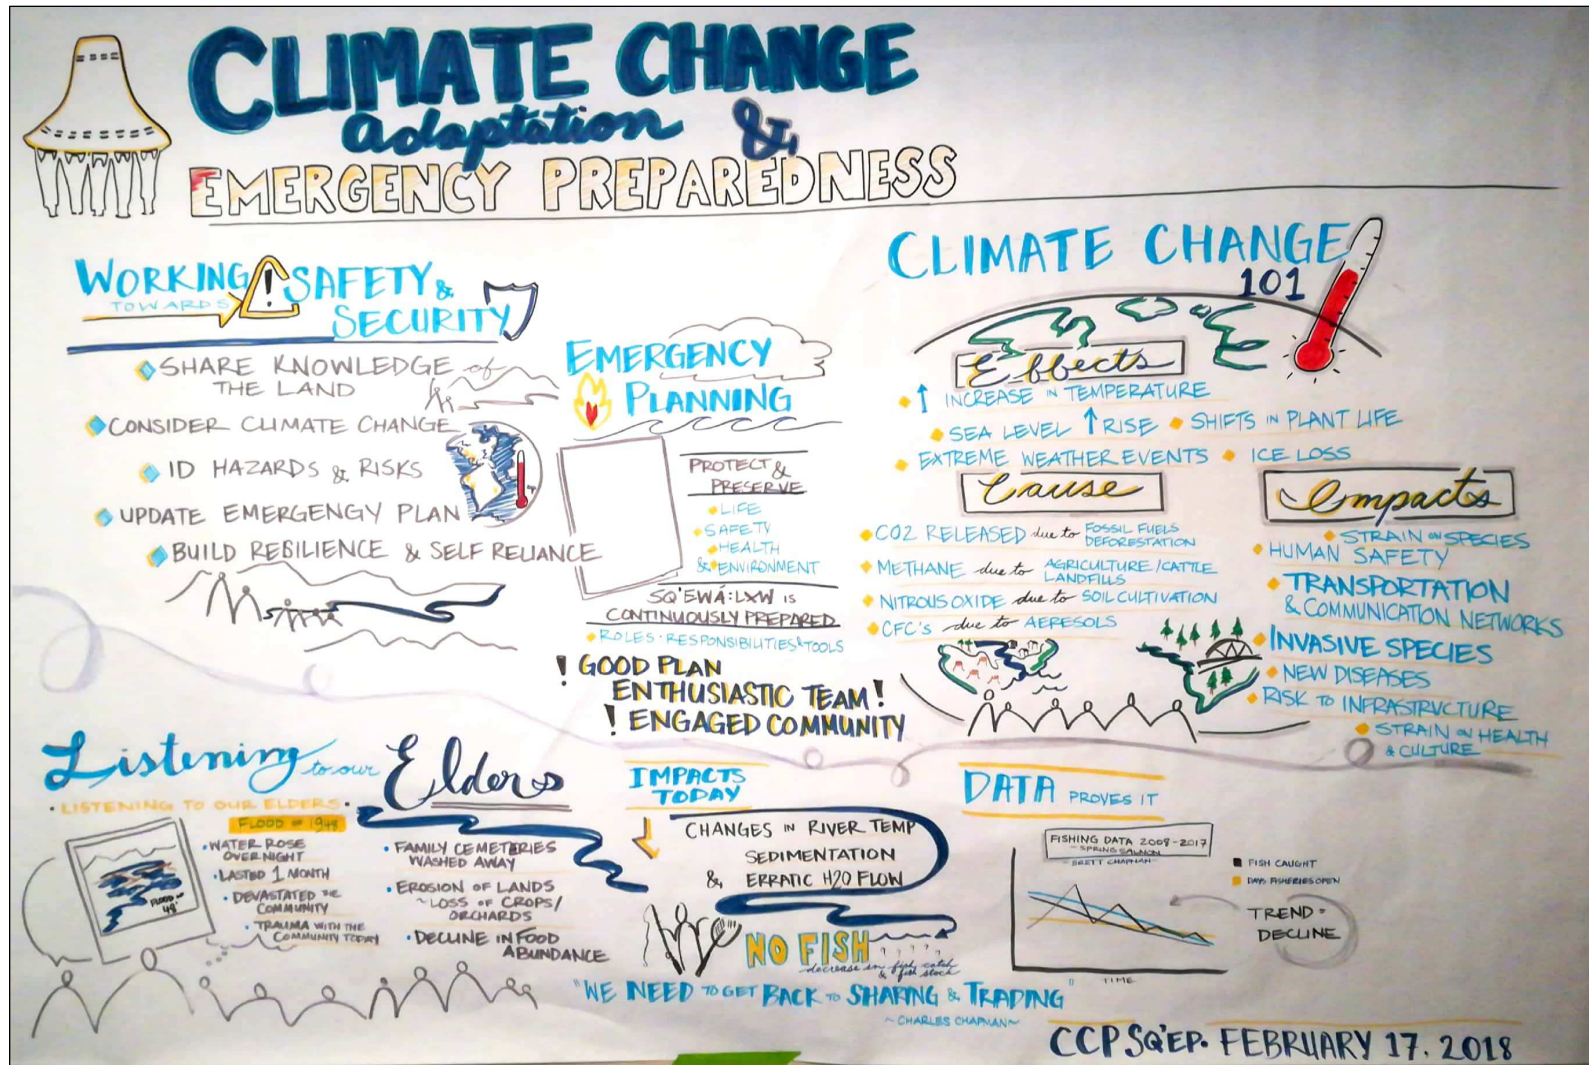 CLIMATE CHANGE
adaptation &
EMERGENCY PREPAREDNESS
WORKING
TOWARDS
!
SAFETY &
SECURITY
SHARE KNOWLEDGE of
THE LAND
CONSIDER CLIMATE CHANGE
ID HAZARDS & RISKS
UPDATE EMERGENGY PLAN
BUILD REBILIENCE & SELF RELIANCE
EMERGENCY
PLANNING
PROTECT &
PRESERVE
LIFE
SAFETY
HEALTH
& ENVIRONMENT
SQ'EWÁ:LXW IS
CONTINUOUSLY PREPARED
ROLES · RESPONSIBILITIES & TOOLS
! GOOD PLAN
ENTHUSIASTIC TEAM !
! ENGAGED COMMUNITY
CLIMATE CHANGE
101
Effects
↑ INCREASE IN TEMPERATURE
SEA LEVEL ↑ RISE
SHIFTS IN PLANT LIFE
EXTREME WEATHER EVENTS
ICE LOSS
Cause
CO2 RELEASED due to FOSSIL FUELS
DEFORESTATION
METHANE due to AGRICULTURE/CATTLE
LANDFILLS
NITROUS OXIDE due to SOIL CULTIVATION
CFC'S due to AERESOLS
Impacts
STRAIN ON SPECIES
HUMAN SAFETY
TRANSPORTATION
& COMMUNICATION NETWORKS
INVASIVE SPECIES
NEW DISEASES
RISK TO INFRASTRUCTURE
STRAIN ON HEALTH
& CULTURE
Listening to our Elders
• LISTENING TO OUR ELDERS •
FLOOD OF 1948
WATER ROSE
OVERNIGHT
• LASTED 1 MONTH
• DEVASTATED THE
COMMUNITY
• TRAUMA WITH THE
COMMUNITY TODAY
FLOOD OF
48'
• FAMILY CEMETERIES
WASHED AWAY
• EROSION OF LANDS
~ LOSS OF CROPS/
ORCHARDS
• DECLINE IN FOOD
ABUNDANCE
IMPACTS
TODAY
CHANGES IN RIVER TEMP
SEDIMENTATION
& ERRATIC H2O FLOW
NO FISH
decrease in fish catch
& fish stock
"WE NEED TO GET BACK TO SHARING & TRADING"
~ CHARLES CHAPMAN ~
DATA PROVES IT
FISHING DATA 2008-2017
~ SPRING SALMON
~ BRETT CHAPMAN ~
FISH CAUGHT
DAYS FISHERIES OPEN
TREND =
DECLINE
TIME
CCP SQ'EP. FEBRUARY 17. 2018